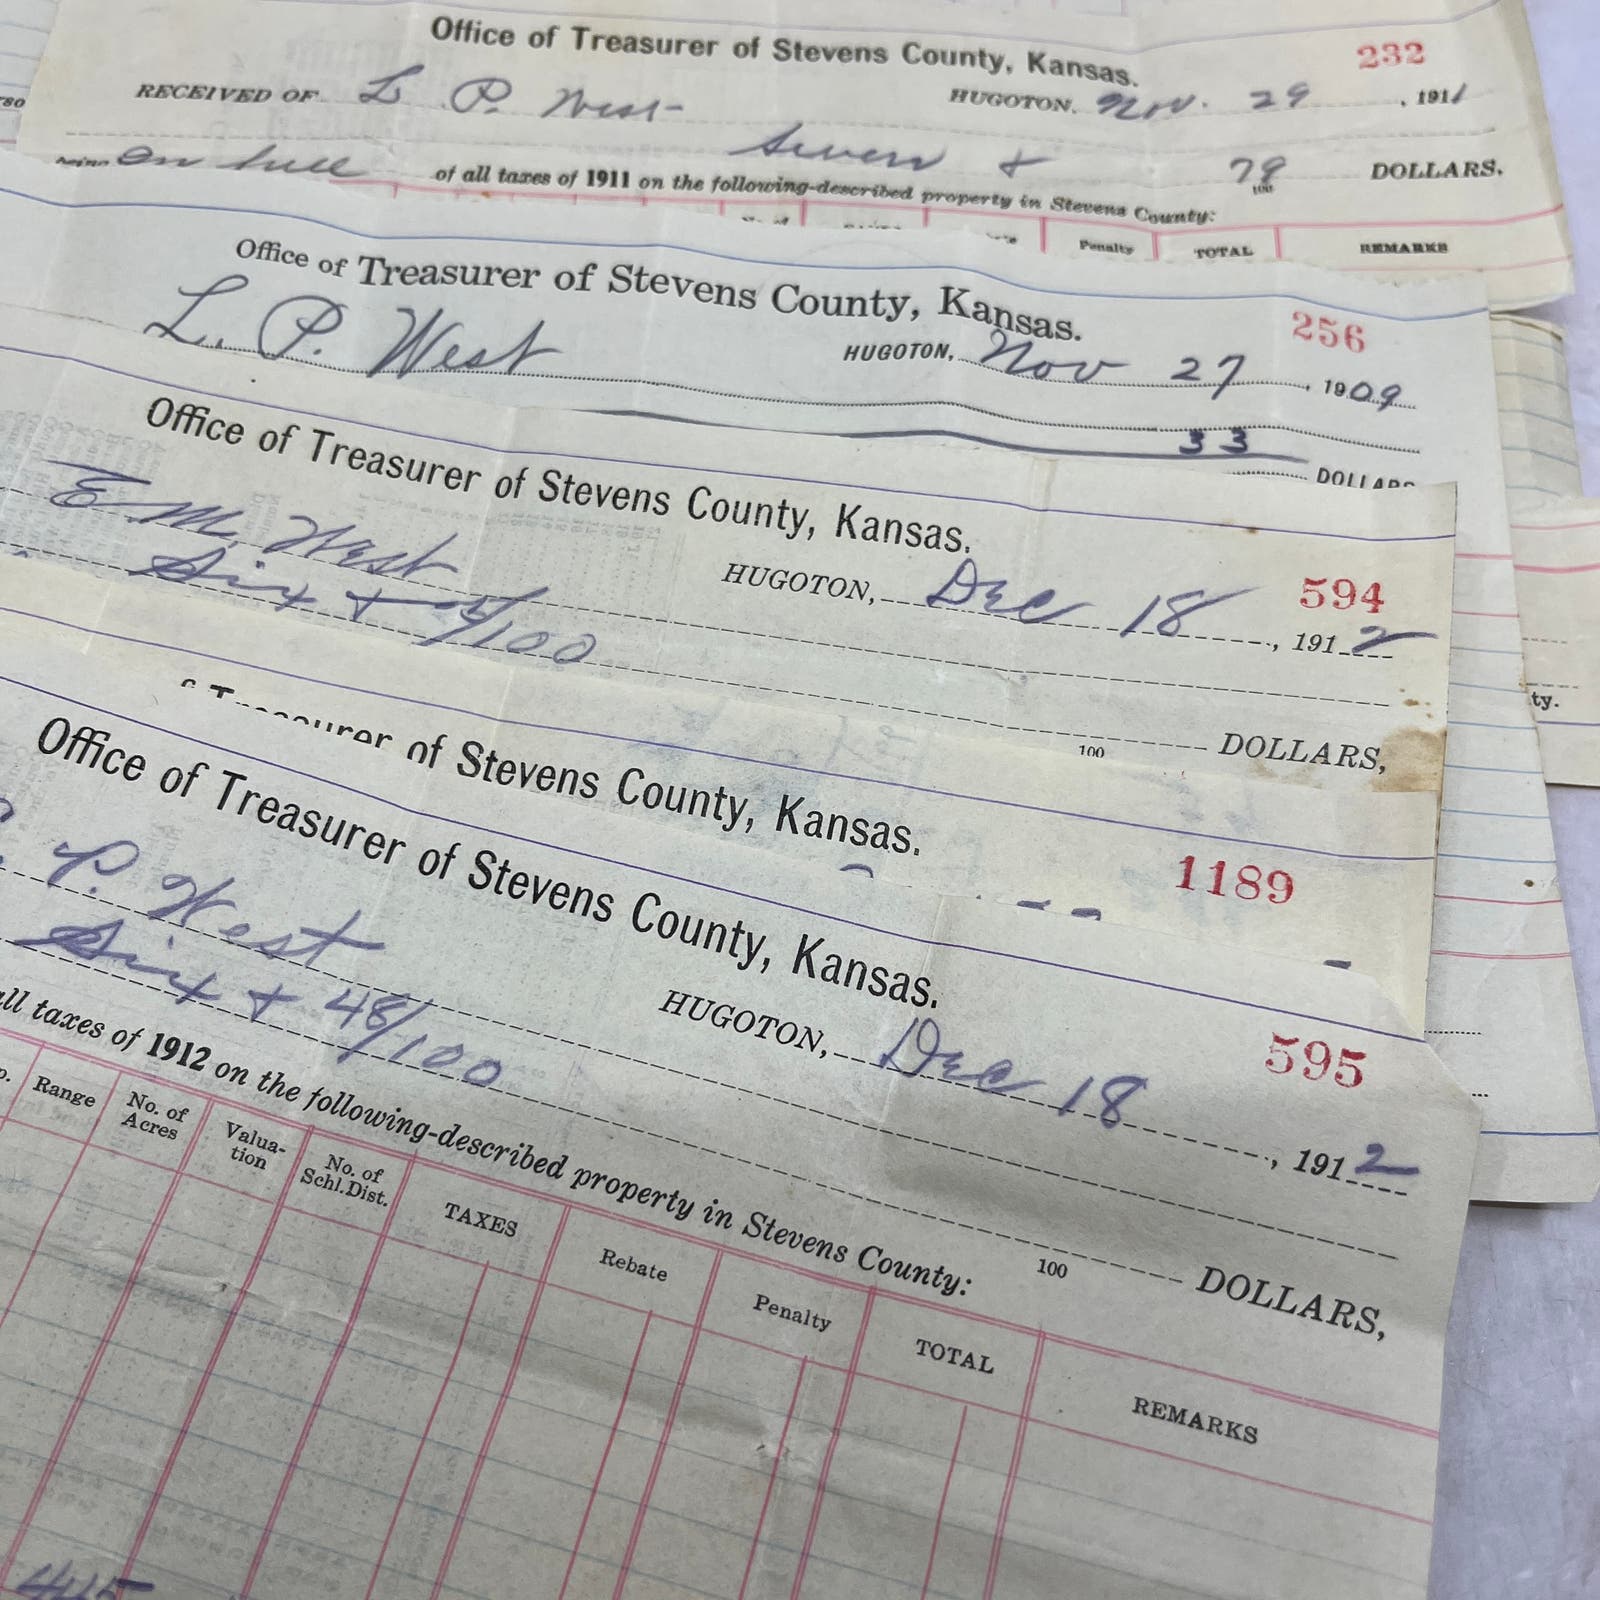 Office of Treasurer of Stevens County, Kansas. 232
RECEIVED OF L P. West HUGOTON, Nov. 29, 1911
Seven & 79/100 DOLLARS,
being in full of all taxes of 1911 on the following-described property in Stevens County:
Penalty TOTAL REMARKS
Office of Treasurer of Stevens County, Kansas. 256
L. P. West HUGOTON, Nov 27, 1909
33 DOLLARS
Office of Treasurer of Stevens County, Kansas. 594
E M. West HUGOTON, Dec 18, 1912
Six + /100
100 DOLLARS,
Treasurer of Stevens County, Kansas.
1189
Office of Treasurer of Stevens County, Kansas. 595
P. West HUGOTON, Dec 18, 1912
Six + 48/100
100 DOLLARS,
all taxes of 1912 on the following-described property in Stevens County:
Range No. of Acres Valua-tion No. of Schl.Dist. TAXES Rebate Penalty TOTAL REMARKS
445
ty.